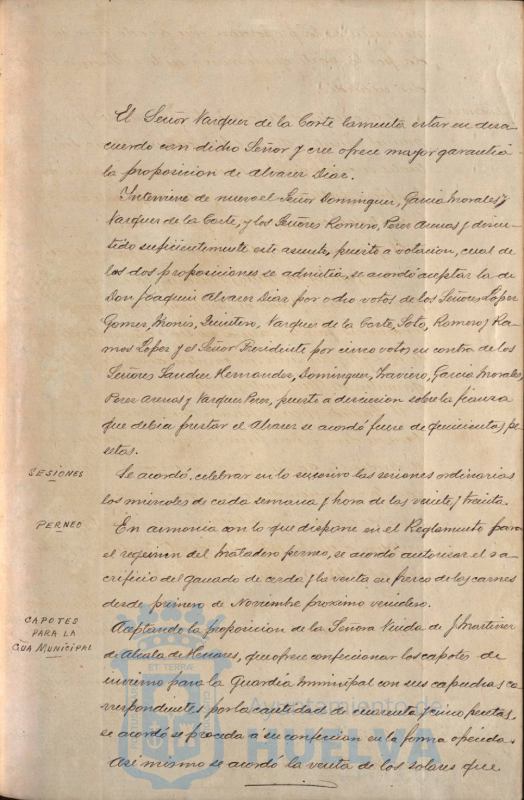 El Señor Vazquez de la Corte lamenta estar en desa
cuerdo con dicho Señor y cree ofrece mayor garantia
la proposicion de Alvarez Diaz.
Interviene de nuevo el Señor Dominguez, Garcia Morales y
Vazquez de la Corte, y los Señores Romero, Perez Arenas y discu-
tido suficientemente este asunto, puesto a votacion, cual de
los dos proposiciones se admitia, se acordó aceptar la de
Don Joaquin Alvarez Diaz por ocho votos de los Señores Lopez
Gomez, Monis, Quintero, Vazquez de la Corte, Soto, Romero y Ra
mos Lopez y el Señor Presidente por cinco votos en contra de los
Señores Sanchez Hernandez, Dominguez, Traviero, Garcia Morales,
Perez Arenas y Vazquez Perez, puesto a discusion sobre la fianza
que debia prestar el Alvarez se acordó fuere de quinientas pe
setas.
SESIONES
Se acordó celebrar en lo sucesivo las sesiones ordinarias
los miercoles de cada semana y hora de las veinte y treinta.
PERNEO
En armonia con lo que dispone en el Reglamento para
el regimen del Matadero perneo, se acordó autorizar el sa
crificio del ganado de cerda y la venta en fresco de las carnes
desde primero de Noviembre proximo venidero.
CAPOTES
PARA LA
GUA MUNICIPAL
Aceptando la proposicion de la Señora Viuda de J. Martinez
de Alcala de Henares, que ofrece confeccionar los capotes de
invierno para la Guardia Municipal con sus capuchas co
rrespondientes por la cantidad de cuarenta y cinco pesetas,
se acordó se proceda a su confeccion en la forma ofrecida.
Asi mismo se acordó la venta de los solares que
ET TERRÆ
Ayuntamiento de
HUELVA